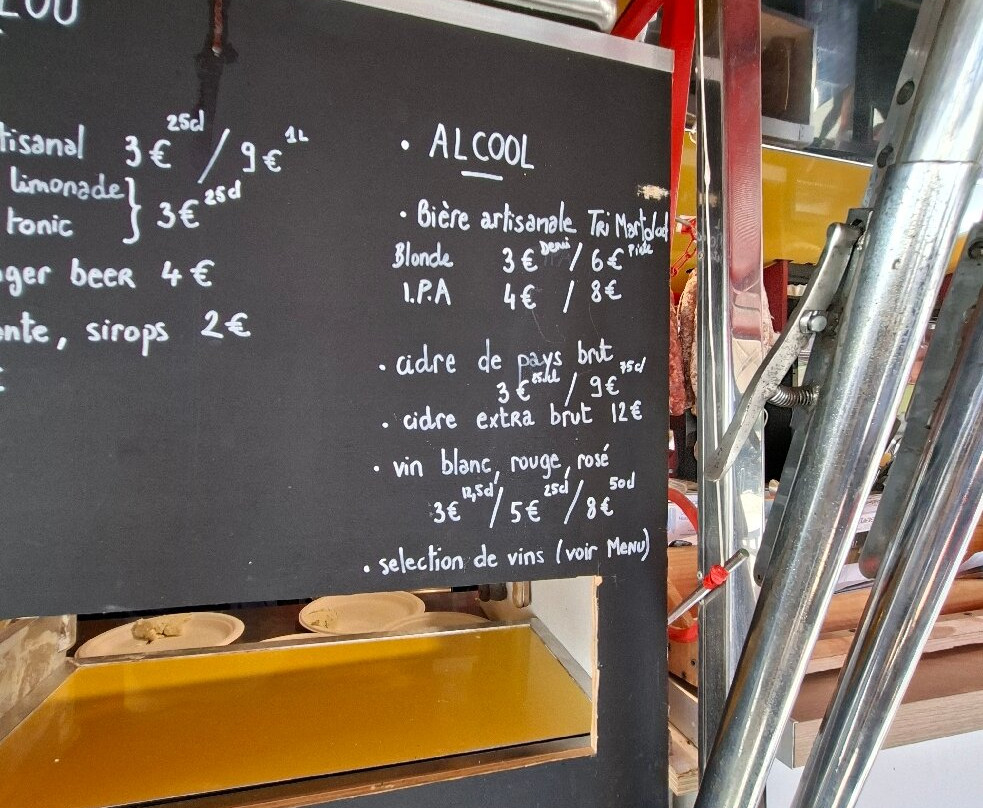 tisanal 3€ 25cl / 9€ 1L
limonade
tonic } 3€ 25cl
ger beer 4€
nte, sirops 2€
€
• ALCOOL
• Bière artisanale Tri Martolod
Blonde 3€ Demi / 6€ Pinte
I.P.A 4€ / 8€
• cidre de pays brut
3€ 25cl / 9€ 75cl
• cidre extra brut 12€
• vin blanc, rouge, rosé
3€ 12,5cl / 5€ 25cl / 8€ 50cl
• selection de vins (voir Menu)